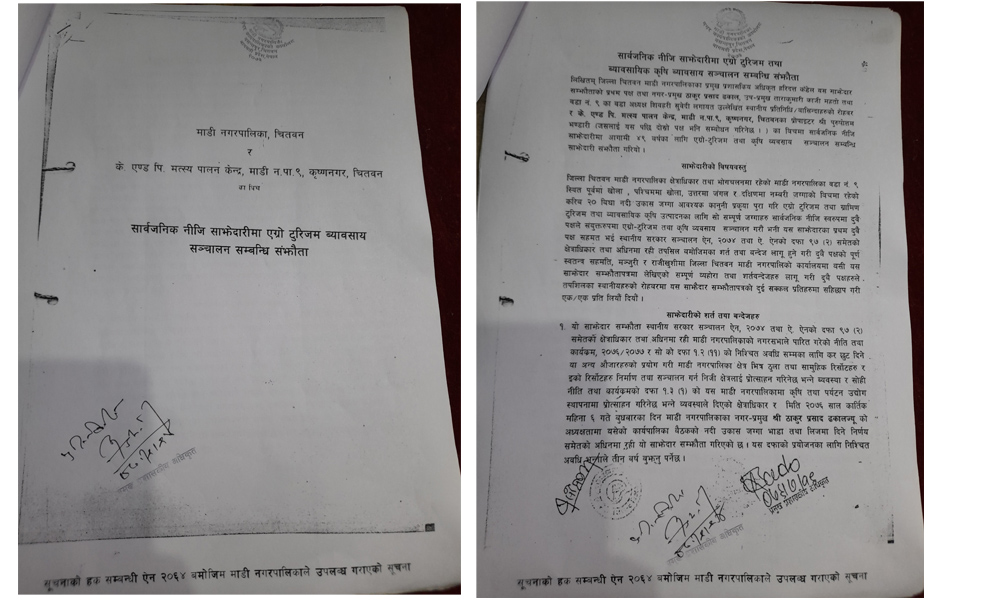 माडी नगरपालिका, चितवन
र
के. एण्ड पि. मत्स्य पालन केन्द्र, माडी न.पा.९, कृष्णनगर, चितवन
का बिच
सार्वजनिक नीजि साभेदारीमा एग्रो टुरिजम ब्यावसाय
सञ्चालन सम्बन्धि संझौता
सूचनाको हक सम्बन्धी ऐन २०६४ बमोजिम माडी नगरपालिकाले उपलब्ध गराएको सूचना
सार्वजनिक नीजि साभेदारीमा एग्रो टुरिजम तथा
ब्यावसायिक कृषि ब्यावसाय सञ्चालन सम्बन्धि संझौता
लिखितम् जिल्ला चितवन माडी नगरपालिकाका प्रमुख प्रशासकिय अधिकृत हरिदत्त कंडेल यस साभेदार
सम्झौताको प्रथम पक्ष तथा नगर-प्रमुख ठाकुर प्रसाद ढकाल, उप-प्रमुख ताराकुमारी काजी महतो तथा
वडा नं. ९ का वडा अध्यक्ष शिवहरी सुवेदी लगायत उल्लेखित स्थानीय प्रतिनिधि/बासिन्दाहरुको रोहवर
र के. एण्ड पि. मत्स्य पालन केन्द्र, माडी न.पा.९, कृष्णनगर, चितवनका प्रोपाइटर श्री पुरुषोतम
भण्डारी (जसलाई यस पछि दोस्रो पक्ष भनि सम्बोधन गरिनेछ । ) का बिचमा सार्वजनिक नीजि
साभेदारीमा आगामी ४९ बर्षका लागि एग्रो-टुरिजम तथा कृषि ब्यवसाय सञ्चालन सम्बन्धि
साभेदारी संझौता गरियो ।
साभेदारीको बिषयवस्तु
जिल्ला चितवन माडी नगरपालिका क्षेत्राधिकार तथा भोगचलनमा रहेको माडी नगरपालिका वडा नं. ९
स्थित पूर्वमा खोला , पश्चिममा खोला, उत्तरमा जंगल र दक्षिणमा नम्बरी जग्गाको बिचमा रहेको
करिब २० बिघा नदी उकास जग्गा आवश्यक कानुनी प्रकृया पुरा गरि एग्रो टुरिजम तथा ग्रामिण
टुरिजम तथा ब्यावसायिक कृषि उत्पादनका लागि सो सम्पूर्ण जग्गाहरु सार्वजनिक नीजि स्वरुपमा दुवै
पक्षले संयुक्तरुपमा एग्रो-टुरिजम तथा कृषि ब्यवसाय सञ्चालन गरौं भनी यस साभेदारका प्रथम दुवै
पक्ष सहमत भई स्थानीय सरकार सञ्चालन ऐन, २०७४ तथा ऐ. ऐनको दफा ९७ (२) समेतको
क्षेत्राधिकार तथा अधिनमा रही तपसिल बमोजिमका शर्त तथा बन्देज लागू हुने गरी दुवै पक्षको पूर्ण
स्वतन्त्र सहमति, मञ्जुरी र राजीखुशीमा जिल्ला चितवन माडी नगरपालिको कार्यालयमा बसी यस
साभेदार सम्झौतापत्रमा लेखिएको सम्पूर्ण व्यहोरा तथा शर्तबन्देजहरु लागू गरी दुवै पक्षहरुले
तपशिलका स्थानीयहरुको रोहवरमा यस साभेदार सम्झौतापत्रको दुई सक्कल प्रतिहरुमा सहिछाप गरी
एक/एक प्रति लियौं दियौं ।
साभेदारीको शर्त तथा बन्देजहरु
१. यो साभेदार सम्झौता स्थानीय सरकार सञ्चालन ऐन, २०७४ तथा ऐ. ऐनको दफा ९७ (२)
समेतको क्षेत्राधिकार तथा अधिनमा रही माडी नगरपालिकाको नगरसभाले पारित गरेको नीति तथा
कार्यक्रम, २०७६/२०७७ र सो को दफा १.२ (११) को निश्चित अवधि सम्मका लागि कर छुट दिने
वा अन्य औजारहरुको प्रयोग गरी माडी नगरपालिका क्षेत्र भित्र ठुला तथा सामुहिक रिसोर्टहरु र
इको रिसोर्टहरु निर्माण तथा सञ्चालन गर्न निजी क्षेत्रलाई प्रोत्साहन गरिनेछ भन्ने ब्यवस्था र सोही
नीति तथा कार्यक्रमको दफा १.३ (१) को यस माडी नगरपालिकामा कृषि तथा पर्यटन उद्योग
स्थापनामा प्रोत्साहन गरिनेछ भन्ने ब्यवस्थाले दिएको क्षेत्राधिकार र मिति २०७६ साल कार्तिक
महिना ६ गते बुधबारका दिन माडी नगरपालिकाका नगर-प्रमुख श्री ठाकुर प्रसाद ढकालज्यू को
अध्यक्षतामा बसेको कार्यपालिका बैठकको नदी उकास जग्गा भाडा तथा लिजमा दिने निर्णय
समेतको अधिनमा रही यो साभेदार सम्झौता गरिएको छ । यस दफाको प्रयोजनका लागि निश्चित
अवधि भन्नाले तीन वर्ष बुझ्नु पर्नेछ ।
प्रमुख प्रशासकीय अधिकृत
सूचनाको हक सम्बन्धी ऐन २०६४ बमोजिम माडी नगरपालिकाले उपलब्ध गराएको सूचना